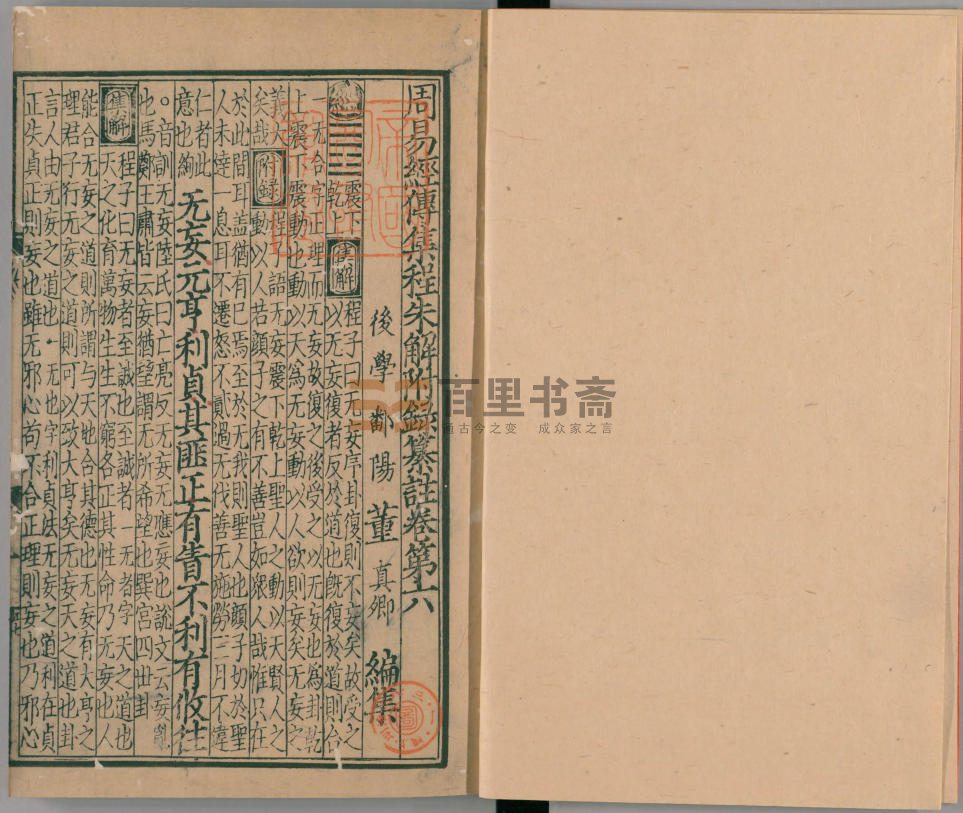 周易經傳集程朱解附錄纂註卷第六
後學鄱陽董真卿編集
經
震下
乾上
集解
程子曰无妄序卦復則不妄矣故受之
以无妄復者反於道也旣復於道則合
一无合字正理而无妄故復之後受之以无妄也爲卦乾
上震下震動也動以天爲无妄動以人欲則妄矣无妄之
義大
矣哉
附錄
程子語无妄震下乾上聖人之動以天賢人之
動以人若顔子之有不善豈如衆人哉惟只在
於此間耳盖猶有已焉至於无我則聖人也顔子切於聖
人未達一息耳不遷怒不貳過无伐善无施勞三月不違
仁者此
意也絢
无妄元亨利貞其匪正有眚不利有攸往
○音訓无妄陸氏曰亡亮反无妄无應妄也說文云妄亂
也馬鄭王肅皆云妄猶望謂无所希望也巽宮四世卦
集解
程子曰无妄者至誠也至誠者一无者字天之道也
天之化育萬物生生不窮各正其性命乃无妄也人
能合无妄之道則所謂与天地合其德也无妄有大亨之
理君子行无妄之道則可以致大亨矣无妄天之道也卦
言人由无妄之道也一无也字利貞法无妄之道利在貞
正失貞正則妄也雖无邪心苟不合正理則妄也乃邪心
百里书斋
通古今之变 成众家之言